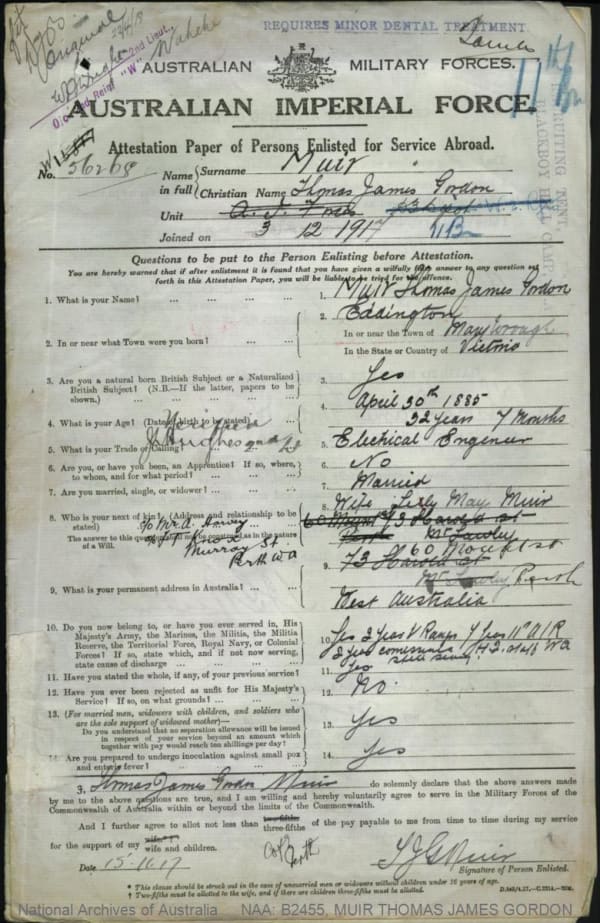 REQUIRES MINOR DENTAL TREATMENT
2nd Lieut.
AUSTRALIAN MILITARY FORCES.
AUSTRALIAN IMPERIAL FORCE.
Attestation Paper of Persons Enlisted for Service Abroad.
No. 56268
Name in full { Surname Muir
Christian Name Thomas James Gordon
Unit
Joined on 3 12 1917
Questions to be put to the Person Enlisting before Attestation.
You are hereby warned that if after enlistment it is found that you have given a wilfully false answer to any question set
forth in this Attestation Paper, you will be liable to be tried for the offence.
1. What is your Name? ... 1. Muir Thomas James Gordon
Eddington
2. In or near what Town were you born? ... 2. In or near the Town of Maryborough
In the State or Country of Victoria
3. Are you a natural born British Subject or a Naturalized
British Subject? (N.B.—If the latter, papers to be
shown.) ... 3. Yes
April 30th 1885
4. What is your Age? (Date of birth to be stated) 4. 32 years 7 Months
5. What is your Trade or Calling? 5. Electrical Engineer
6. Are you, or have you been, an Apprentice? If so, where,
to whom, and for what period? ... 6. No
7. Are you married, single, or widower? ... 7. Married
8. Who is your next of kin? (Address and relationship to be
stated) 8. Wife May Muir
The answer to this question must not be construed as in the nature
of a Will.
Murray St.
Perth WA
9. What is your permanent address in Australia? ... 9.
West Australia
10. Do you now belong to, or have you ever served in, His
Majesty's Army, the Marines, the Militia, the Militia
Reserve, the Territorial Force, Royal Navy, or Colonial
Forces? If so, state which, and if not now serving,
state cause of discharge ... 10. Yes
11. Have you stated the whole, if any, of your previous service? 11. Yes
12. Have you ever been rejected as unfit for His Majesty's
Service? If so, on what grounds? ... 12. No.
13. (For married men, widowers with children, and soldiers who
are the sole support of widowed mother)—
Do you understand that no separation allowance will be issued
in respect of your service beyond an amount which
together with pay would reach ten shillings per day? 13. Yes
14. Are you prepared to undergo inoculation against small pox
and enteric fever? ... 14. Yes
I, Thomas James Gordon Muir do solemnly declare that the above answers made
by me to the above questions are true, and I am willing and hereby voluntarily agree to serve in the Military Forces of the
Commonwealth of Australia within or beyond the limits of the Commonwealth.
And I further agree to allot not less than three-fifths of the pay payable to me from time to time during my service
for the support of my wife and children.
Date 15-11-17 T J G Muir
Signature of Person Enlisted.
* This clause should be struck out in the case of unmarried men or widowers without children under 16 years of age.
† Two-fifths must be allotted to the wife, and if there are children three-fifths must be allotted.
National Archives of Australia NAA: B2455, MUIR THOMAS JAMES GORDON